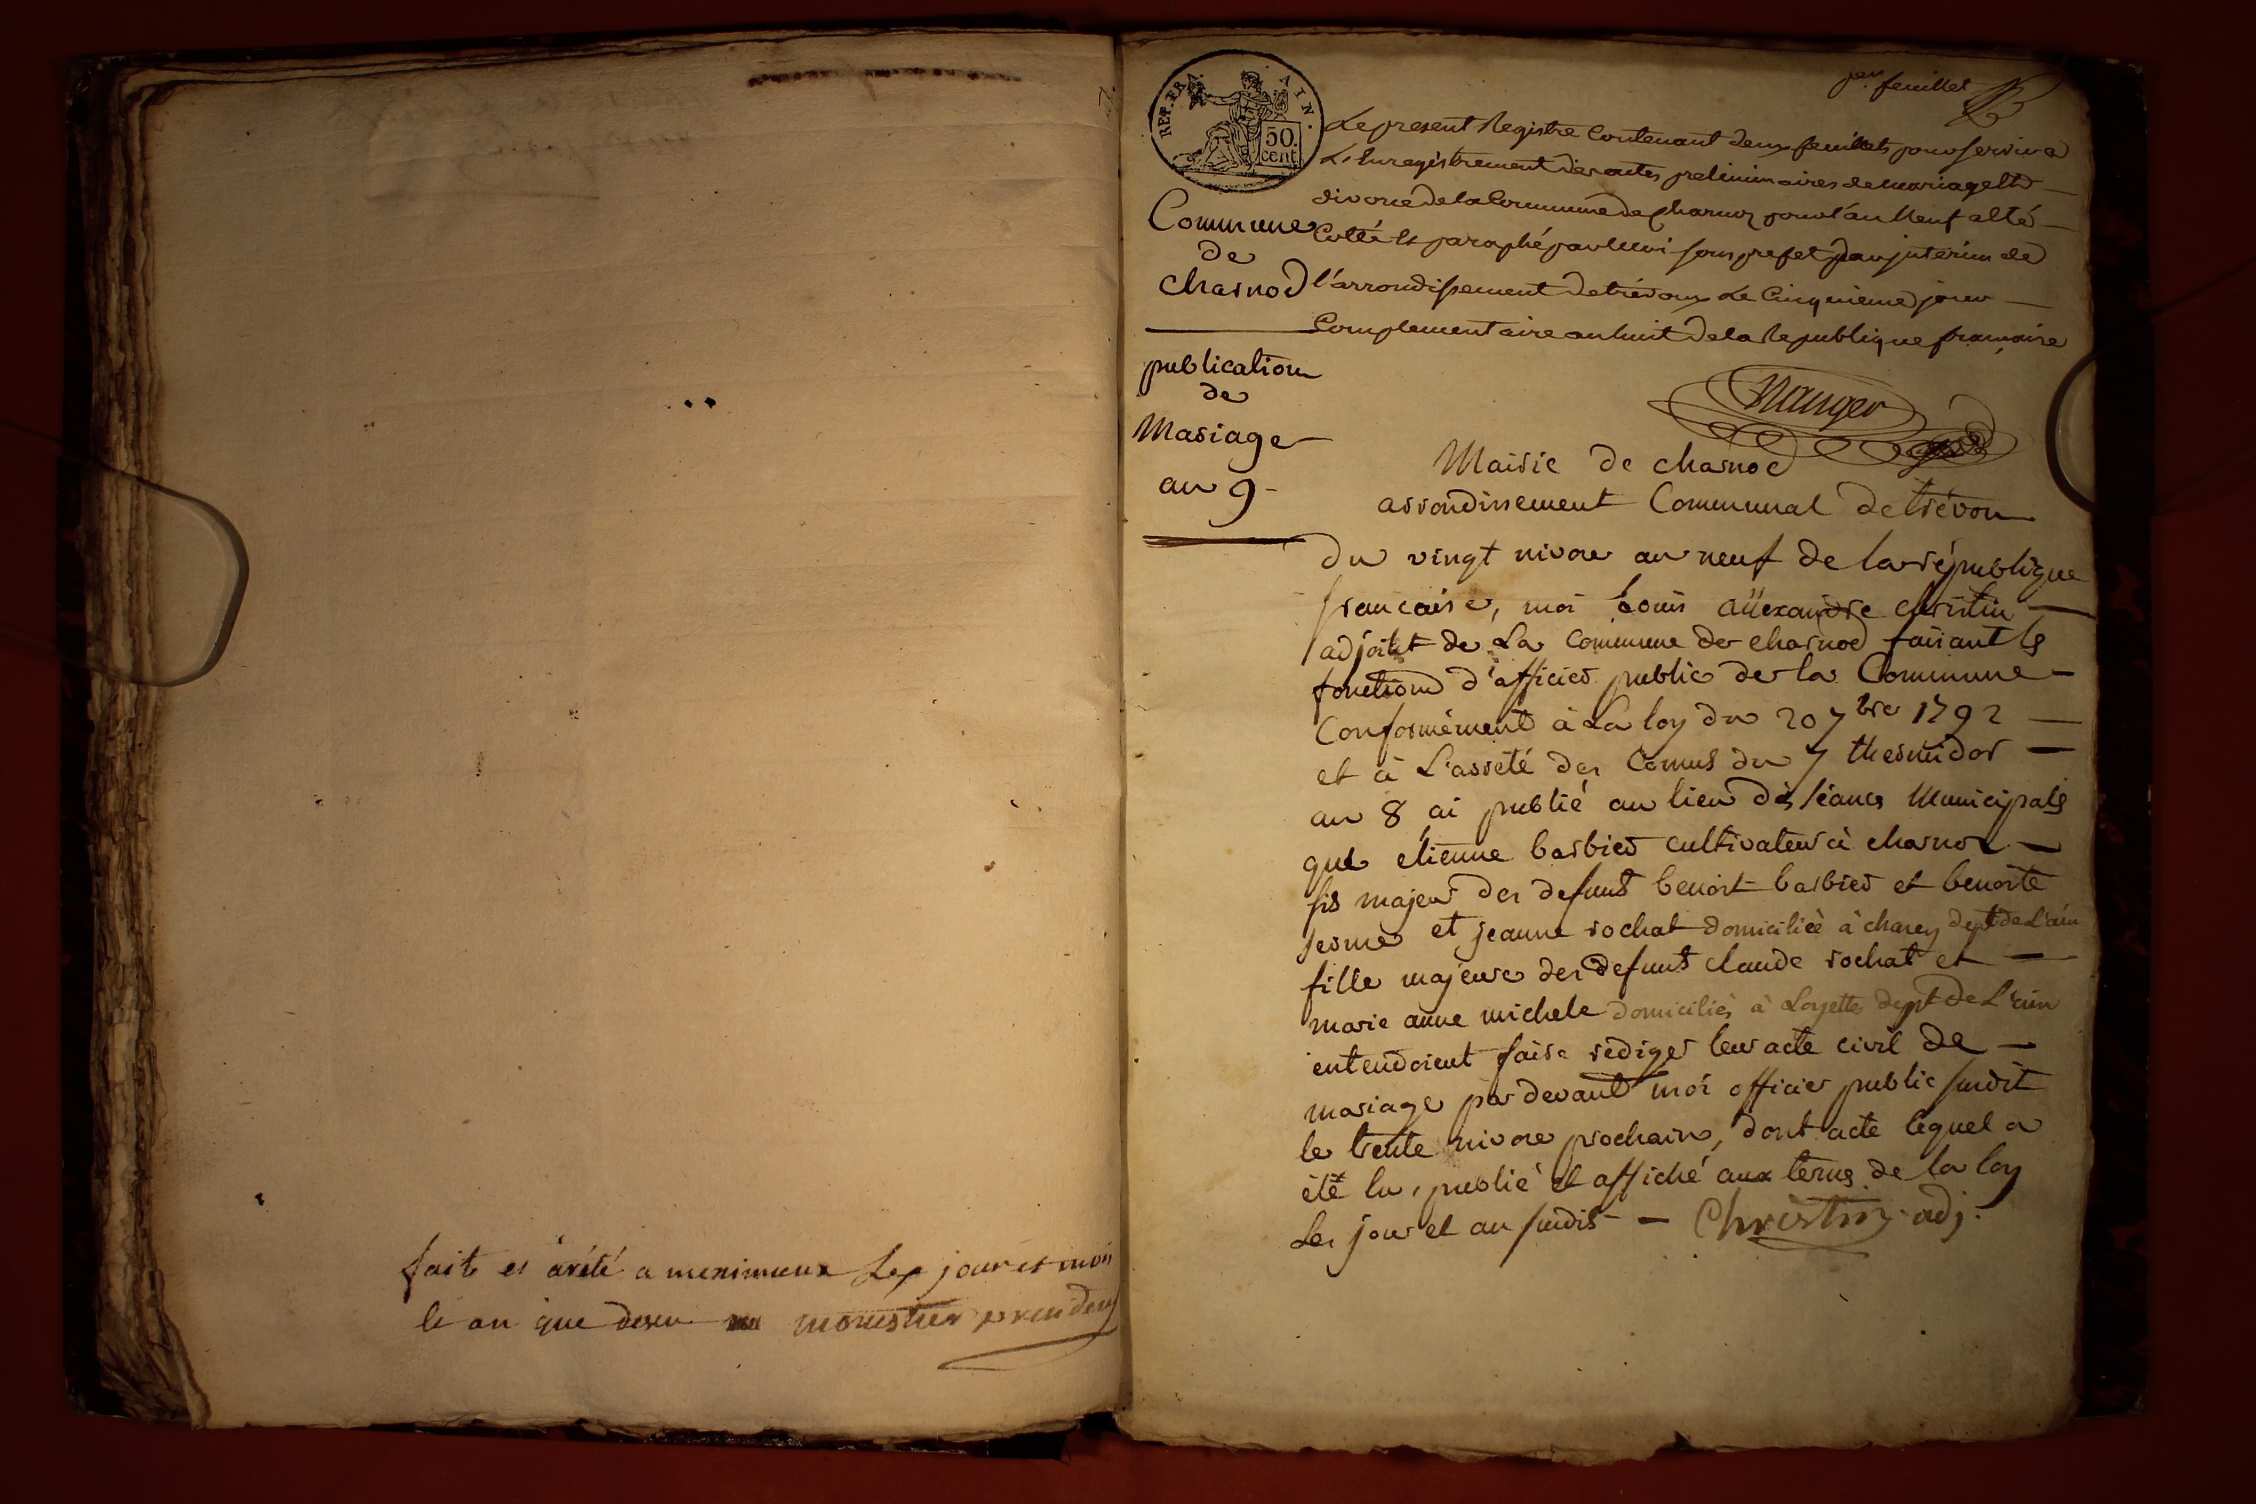 faite et arété a meximieux Les jour et mois
le an que desu monestier presidens
REP. FRA. AIN.
50.
cent
per feuillet
Le present Registre Contenant deux feuillets pour servir a
L'Enregistrement des actes preliminaires de mariage Et
divorce de la Commune de Charnoz pour l'an Neuf a Eté
Cotté Et paraphé par Nous sous prefet par interim de
l'arrondissement de trévoux Le Cinquieme jour
Complementaire an huit de la Republique francaise
Mauger
Commune
de
charnod
publication
de
Mariage
an 9
Mairie de charnod
arrondissement Communal de trévou
Du vingt nivose an neuf de la république
francaise, moi Louis allexandre christin
adjoint de La Commune de charnod faisant les
fonctions d'afficier public de la Commune
Conformément à La loy du 20 7bre 1792
et à L'arrêté des Consuls du 7 thermidor
an 8 ai publié au lieu des séances Municipales
que etienne barbier cultivateur à charnoz
fis majeur des defunts benoit barbier et benoite
ferme et jeanne rochat domiciliée à charey dept de L'ain
fille majeure des defunts claude rochat et
marie anne michele domiciliés à Loyettes dept de L'ain
entendoient faire rédiger leur acte civil de
mariage par devant moi officier public susdit
le trente nivose prochain, dont acte lequel a
été lu, publié et affiché aux termes de la loy
Les jour et an susdits Christin adj.